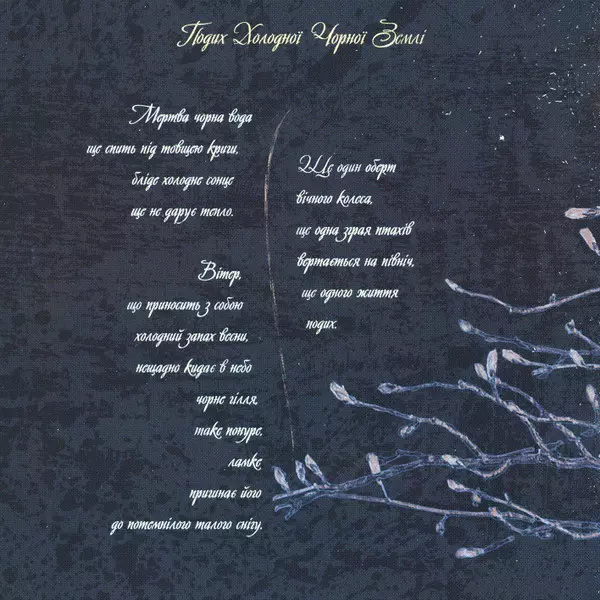 Подих Холодної Чорної Землі
Мертва чорна вода
ще спить під товщею криги,
бліде холодне сонце
ще не дарує тепло.
Вітер,
що приносить з собою
холодний запах весни,
нещадно кидає в небо
чорне гілля,
таке понуре,
ламке,
пригинає його
до потемнілого талого снігу.
Ще один оберт
вічного колеса,
ще одна зграя птахів
вертається на північ,
ще одного життя
подих.